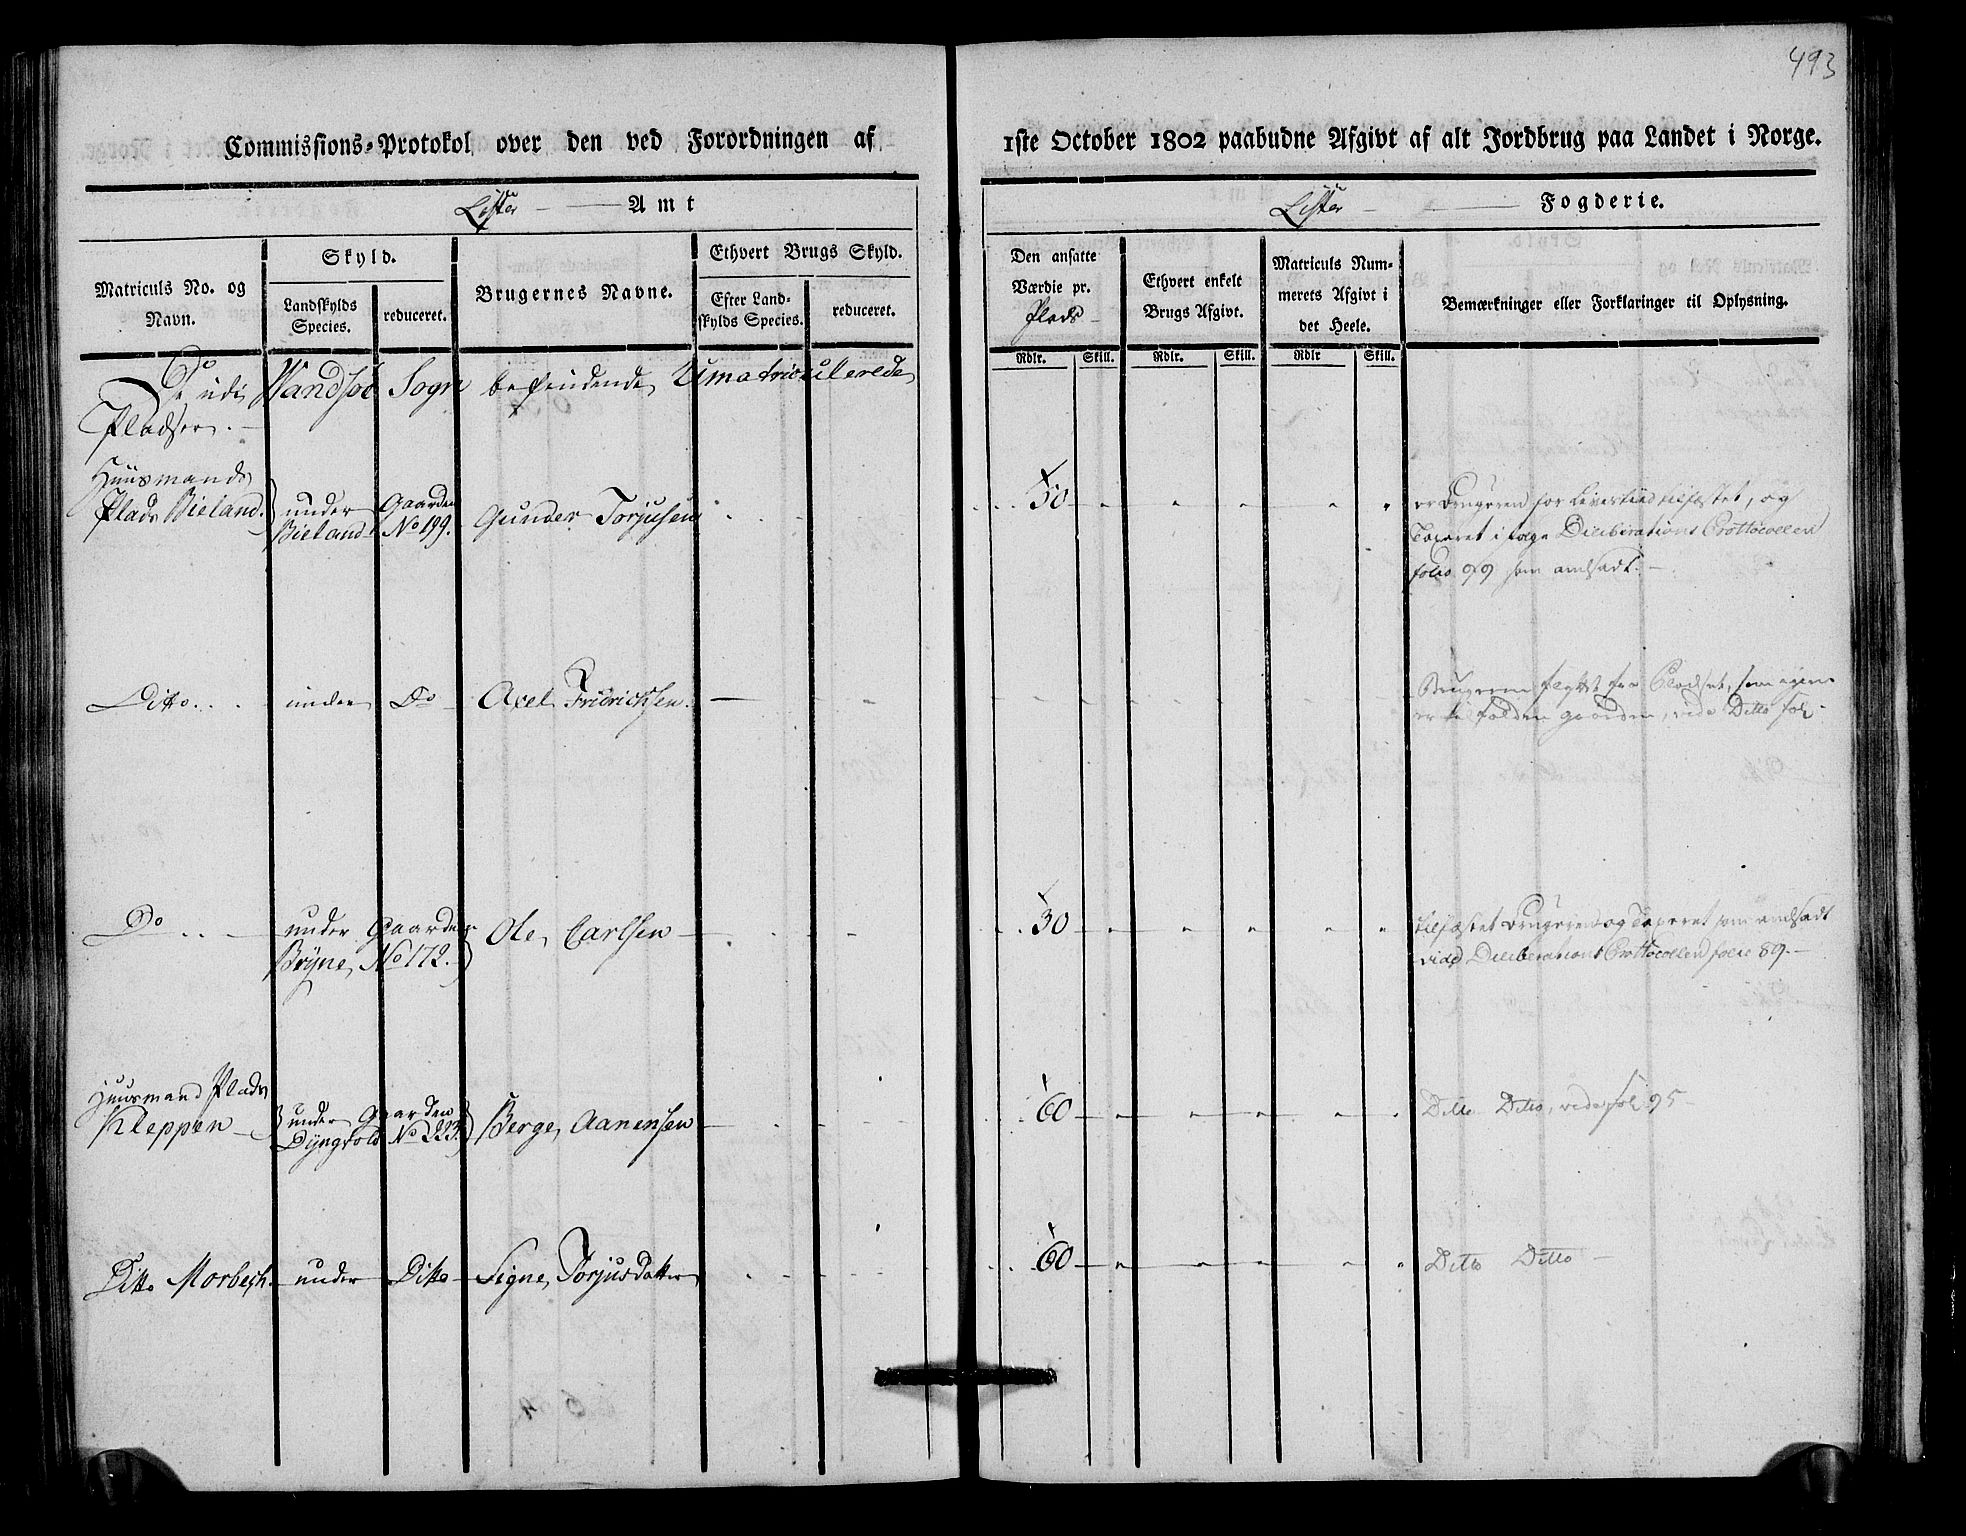 493
Commissions-Protokol over den ved Forordningen af
1ste October 1802 paabudne Afgivt af alt Jordbrug paa Landet i Norge.
Lister Amt
Lister Fogderie.
Matriculs No. og Navn.
Skyld.
Landskylds Species.
reduceret.
Brugernes Navne.
Ethvert Brugs Skyld.
Efter Landskylds Species.
reduceret.
Den ansatte Værdie pr. Plads
Ethvert enkelt Brugs Afgivt.
Matriculs Nummerets Afgivt i det Heele.
Bemærkninger eller Forklaringer til Oplysning.
Rdlr. Skill. Rdlr. Skill. Rdlr Skill.
De udi Wandsøe Sogn befindende Umatriculerede
Pladser.
Huusmands
Plads Bieland. under Gaarden Gunder Torjusen 50
Bieland No 199.
er Brugeren for Livestiid tilfæstet, og
Taxeret i følge Deliberations Prottocollen
folio 99 som andsadt.
Ditto under Do Axel Fridrichsen
Brugeren flyttt fra Pladset, som igien
gaarden, vide Ditto fol
Do under Gaarden Ole Carlsen 30
Brÿne, No 172.
tilfæstet Brugeren og Taxeret som andsadt
vide Deliberations Prottocollen folio 89.
Huusmand Plads
Kleppen under Gaarden Berge Aanensen 60
Dÿngvold No 223.
Ditto Ditto, vide fol 95
Ditto Morbech under Ditto Signe Torjusdatter 60
Ditto Ditto